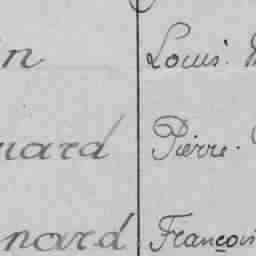 in Louis.
nard Pierre.
nard François